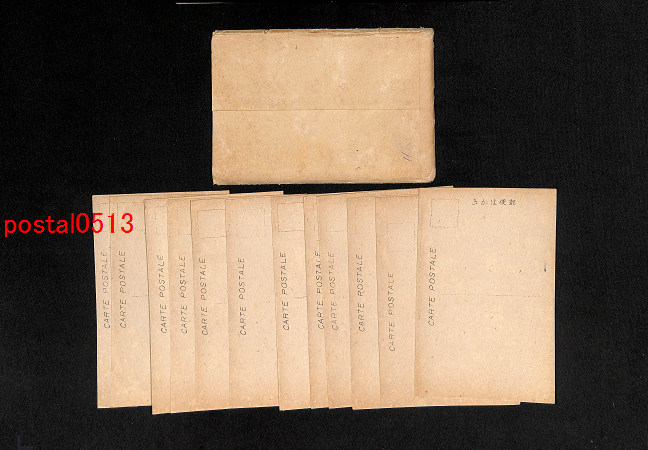 postal0513
きがは便郵
CARTE POSTALE
CARTE POSTALE
CARTE POSTALE
CARTE POSTALE
CARTE POSTALE
CARTE POSTALE
CARTE POSTALE
CARTE POSTALE
CARTE POSTALE
CARTE POSTALE
CARTE POSTALE
CARTE POSTALE